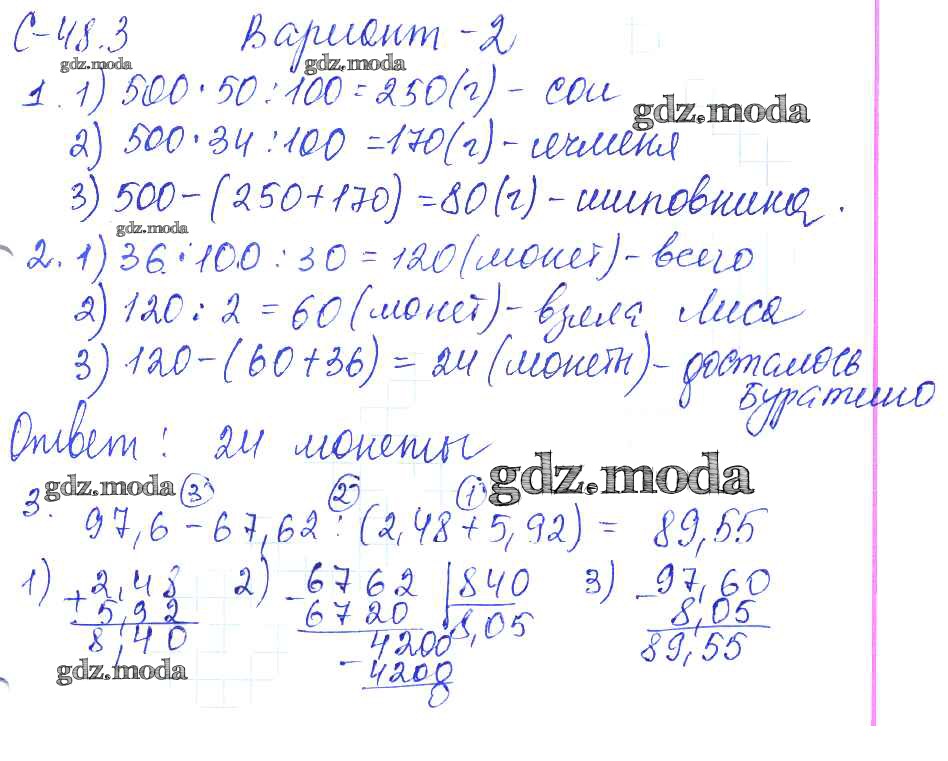 С-48.3 Вариант -2
gdz.moda gdz.moda
1. 1) 500 · 50 : 100 = 250 (г) - сои
gdz.moda
2) 500 · 34 : 100 = 170 (г) - ячменя
3) 500 - (250 + 170) = 80 (г) - шиповника.
gdz.moda
2. 1) 36 · 100 : 30 = 120 (монет) - всего
2) 120 : 2 = 60 (монет) - взяла Лиса
3) 120 - (60 + 36) = 24 (монеты) - досталось
Буратино
Ответ: 24 монеты
gdz.moda gdz.moda
3. ③ ② ①
97,6 - 67,62 : (2,48 + 5,92) = 89,55
1) + 2,48 2) - 6762 | 840 3) - 97,60
5,92 6720 8,05 8,05
8,40 4200 89,55
- 4200
gdz.moda
0